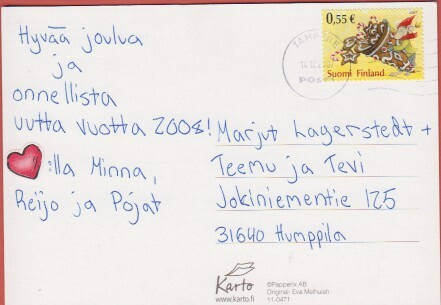 Hyvää joulua
ja
onnellista
uutta vuotta 2008!
:lla Minna,
Reijo ja Pojat
0,55 €
2007
Suomi Finland
TAMPERE
POSTI
Marjut Lagerstedt +
Teemu ja Tevi
Jokiniementie 125
31640 Humppila
Karto
www.karto.fi
©Papperix AB
Original: Eva Melhuish
11-0471